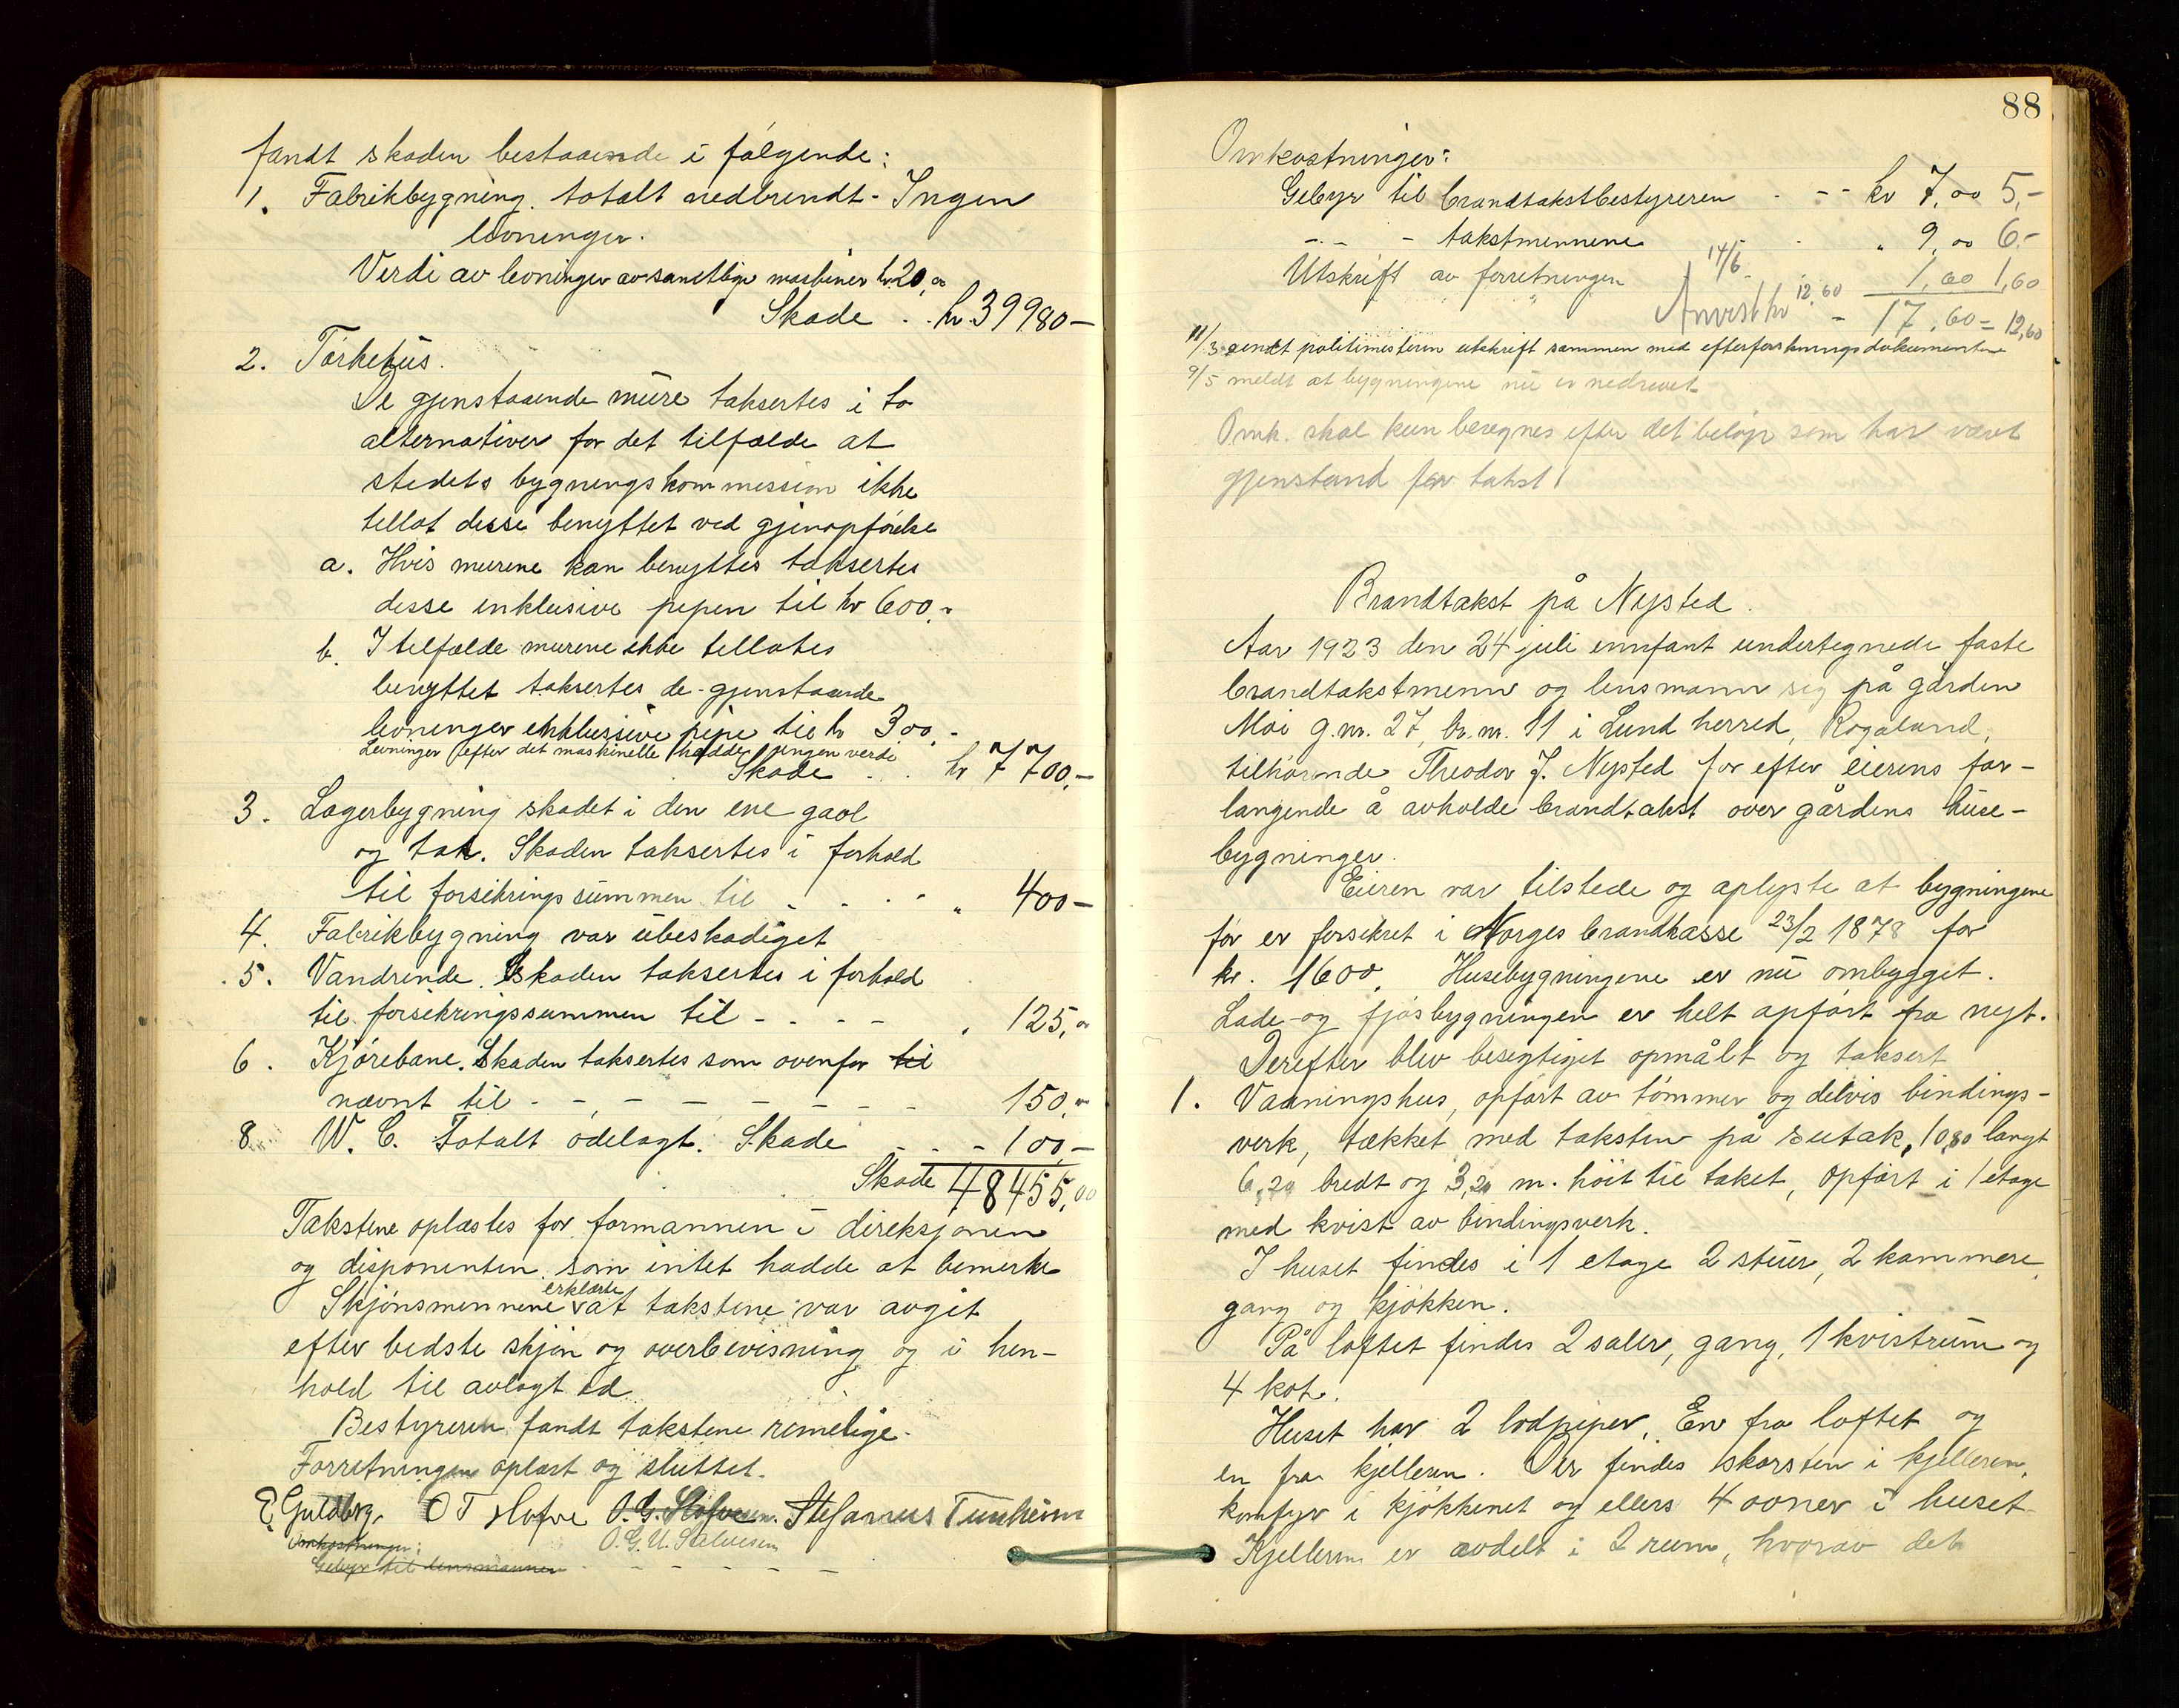 fandt skaden bestaaende i følgende:
1. Fabrikbygning. totalt nedbrendt - Ingen
levninger.
Verdi av levninger av samtlige maskiner kr. 20,00
Skade . . kr. 39980-
2. Tørkehus.
De gjenstaaende mure taksertes i to
alternativer for det tilfælde at
stedets bygningskommission ikke
tillot disse benyttet ved gjenopførelse
a. Hvis murene kan benyttes taksertes
disse inklusive pipen til kr 600,-
b. I tilfælde murene ikke tillotes
benyttet taksertes de gjenstaaende
levninger inklussive pipe til kr 300,-
Levninger efter det maskinelle hadde ingen verdi
Skade . . kr 7700,-
3. Lagerbygning skadet i den ene gavl
og tak. Skaden taksertes i forhold
til forsikringssummen til - - - - " 400-
4. Fabrikbygning var ubeskadiget
5. Vandrende. Skaden taksertes i forhold
til forsikringssummen til - - - - " 125,00
6. Kjørebane. Skaden taksertes som ovenfor til
nævnt til - - - - - - - - 150,00
8. W. C. Totalt ødelagt. Skade - - - 100,-
Skade 48455,00
Takstene oplæstes for formannen i direksjonen
og disponenten som intet hadde at bemerke
erklærte
Skjønsmennene at takstene var avgit
efter bedste skjøn og overbevisning og i hen-
hold til avlagt ed.
Bestyreren fandt takstene rimelige.
Forretningen oplæst og sluttet.
E. Guldbrg. O T Hofve O. G. Stefanus Tunheim
O. G. U. Salvesen
Omkostninger:
Gebyr til lensmannen - - - - - -
88
Omkostninger:
Gebyr til brandtakstbestyreren - - - kr 7,00 5,-
-"- - takstmennene - " 9,00 6,-
14/6
Utskrift av forretningen 1,60 1,60
Anvist kr 12,60 - 17,60 = 12,60
11/3 sendt politimesteren utskrift sammen med efterforskningsdokumentene
9/5 meldt at bygningene nu er nedrevet
Omk. skal kun beregnes efter det beløp som har været
gjenstand for takst!
Brandtakst på Nysted.
Aar 1923 den 24 juli innfant undertegnede faste
brandtakstmenn og lensmann sig på gården
Moi g.nr. 27, br.nr. 11 i Lund herred, Rogaland,
tilhørende Theodor J. Nysted for efter eierens for-
langende å avholde brandtakst over gårdens huse-
bygninger.
Eieren var tilstede og oplyste at bygningene
før er forsikret i Norges brandkasse 23/2 1878 for
kr. 1600. Husebygningene er nu ombygget.
Lade- og fjøsbygningen er helt opført fra nyt.
Derefter blev besigtiget opmålt og taksert
1. Vaaningshus, opført av tømmer og delvis bindings-
verk, tækket med taksten på sutak, 10,80 langt
6,20 bredt og 3,20 m. høit til taket, opført i 1 etage
med kvist av bindingsverk.
I huset findes i 1 etage 2 stuer, 2 kammere,
gang og kjøkken.
På loftet findes 2 saler, gang, 1 kvistrum og
4 kot.
Huset har 2 lodpiper. En fra loftet og
en fra kjelleren. Der findes skorsten i kjelleren,
komfyr i kjøkkenet og ellers 4 ovner i huset
Kjelleren er avdelt i 2 rum, hvorav det